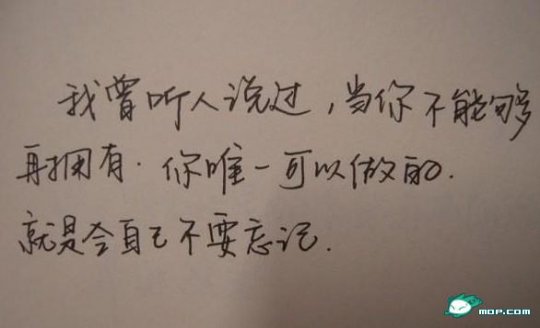 我曾听人说过，当你不能够
再拥有．你唯一可以做的．
就是令自己不要忘记．
MOP.COM